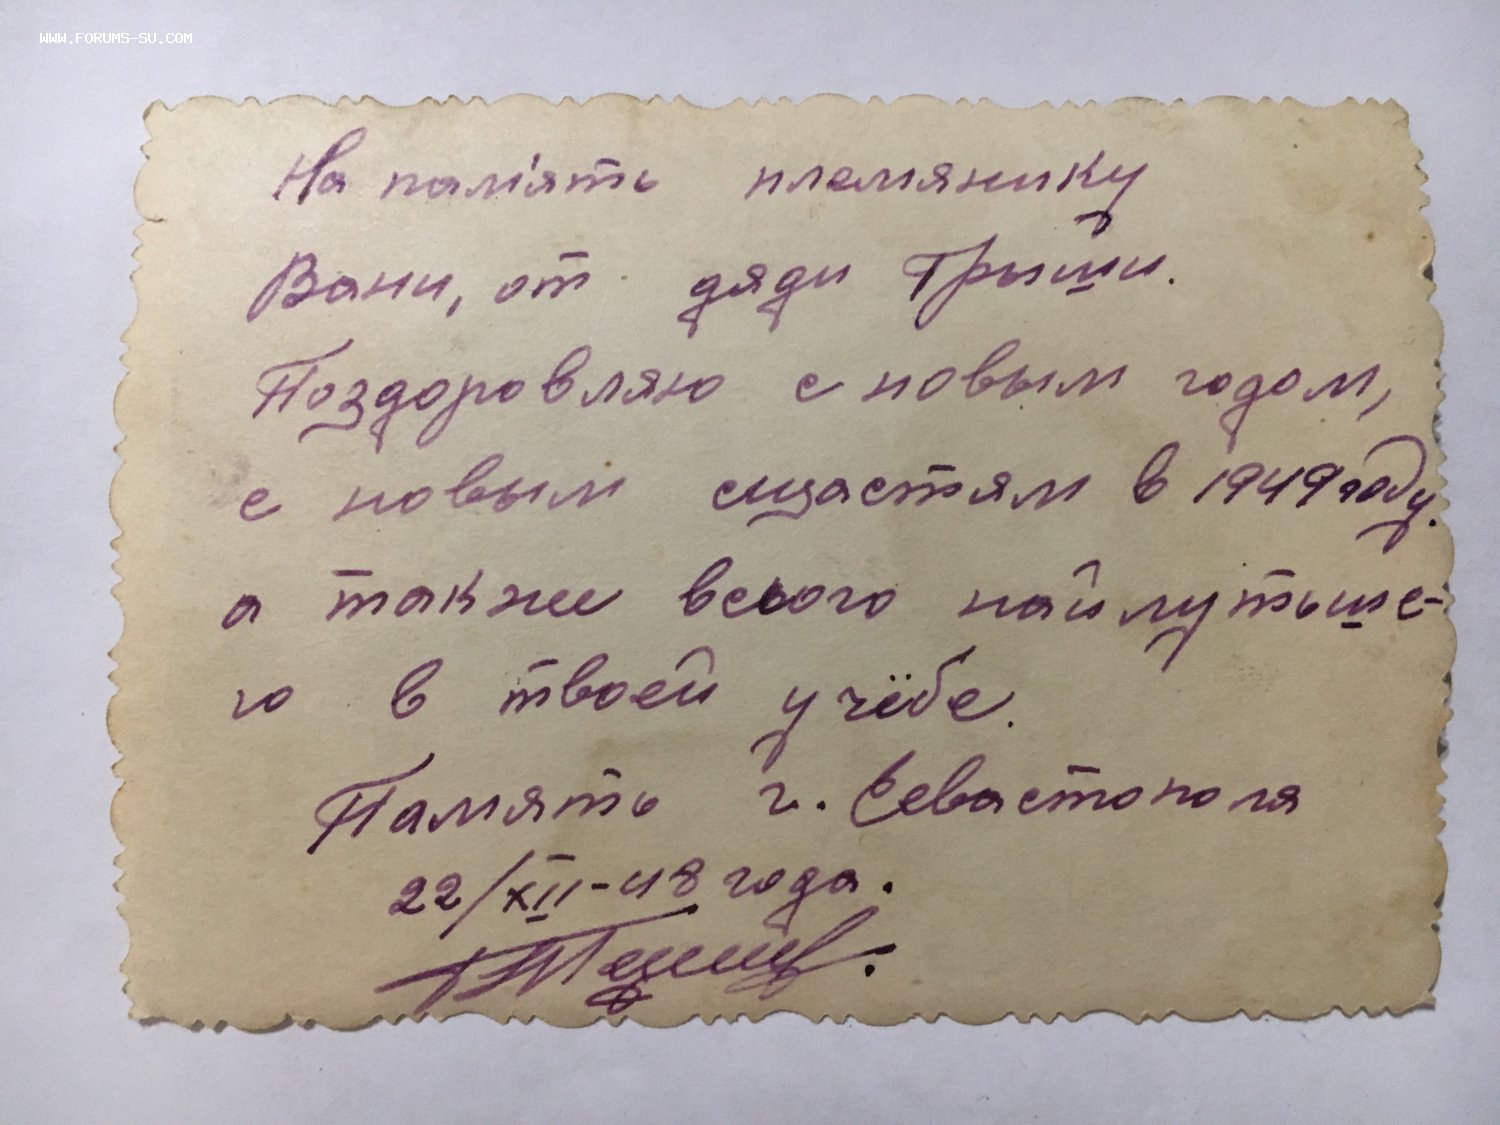 WWW.FORUMS-SU.COM
На пам'ять племянику
Вани, от дяди Грыши.
Поздоровляю с новым годом,
с новым сщастям в 1949 году.
а также всього найлутьше-
го в твоей учёбе.
Память г. Севастополя
22/XII-48 года.